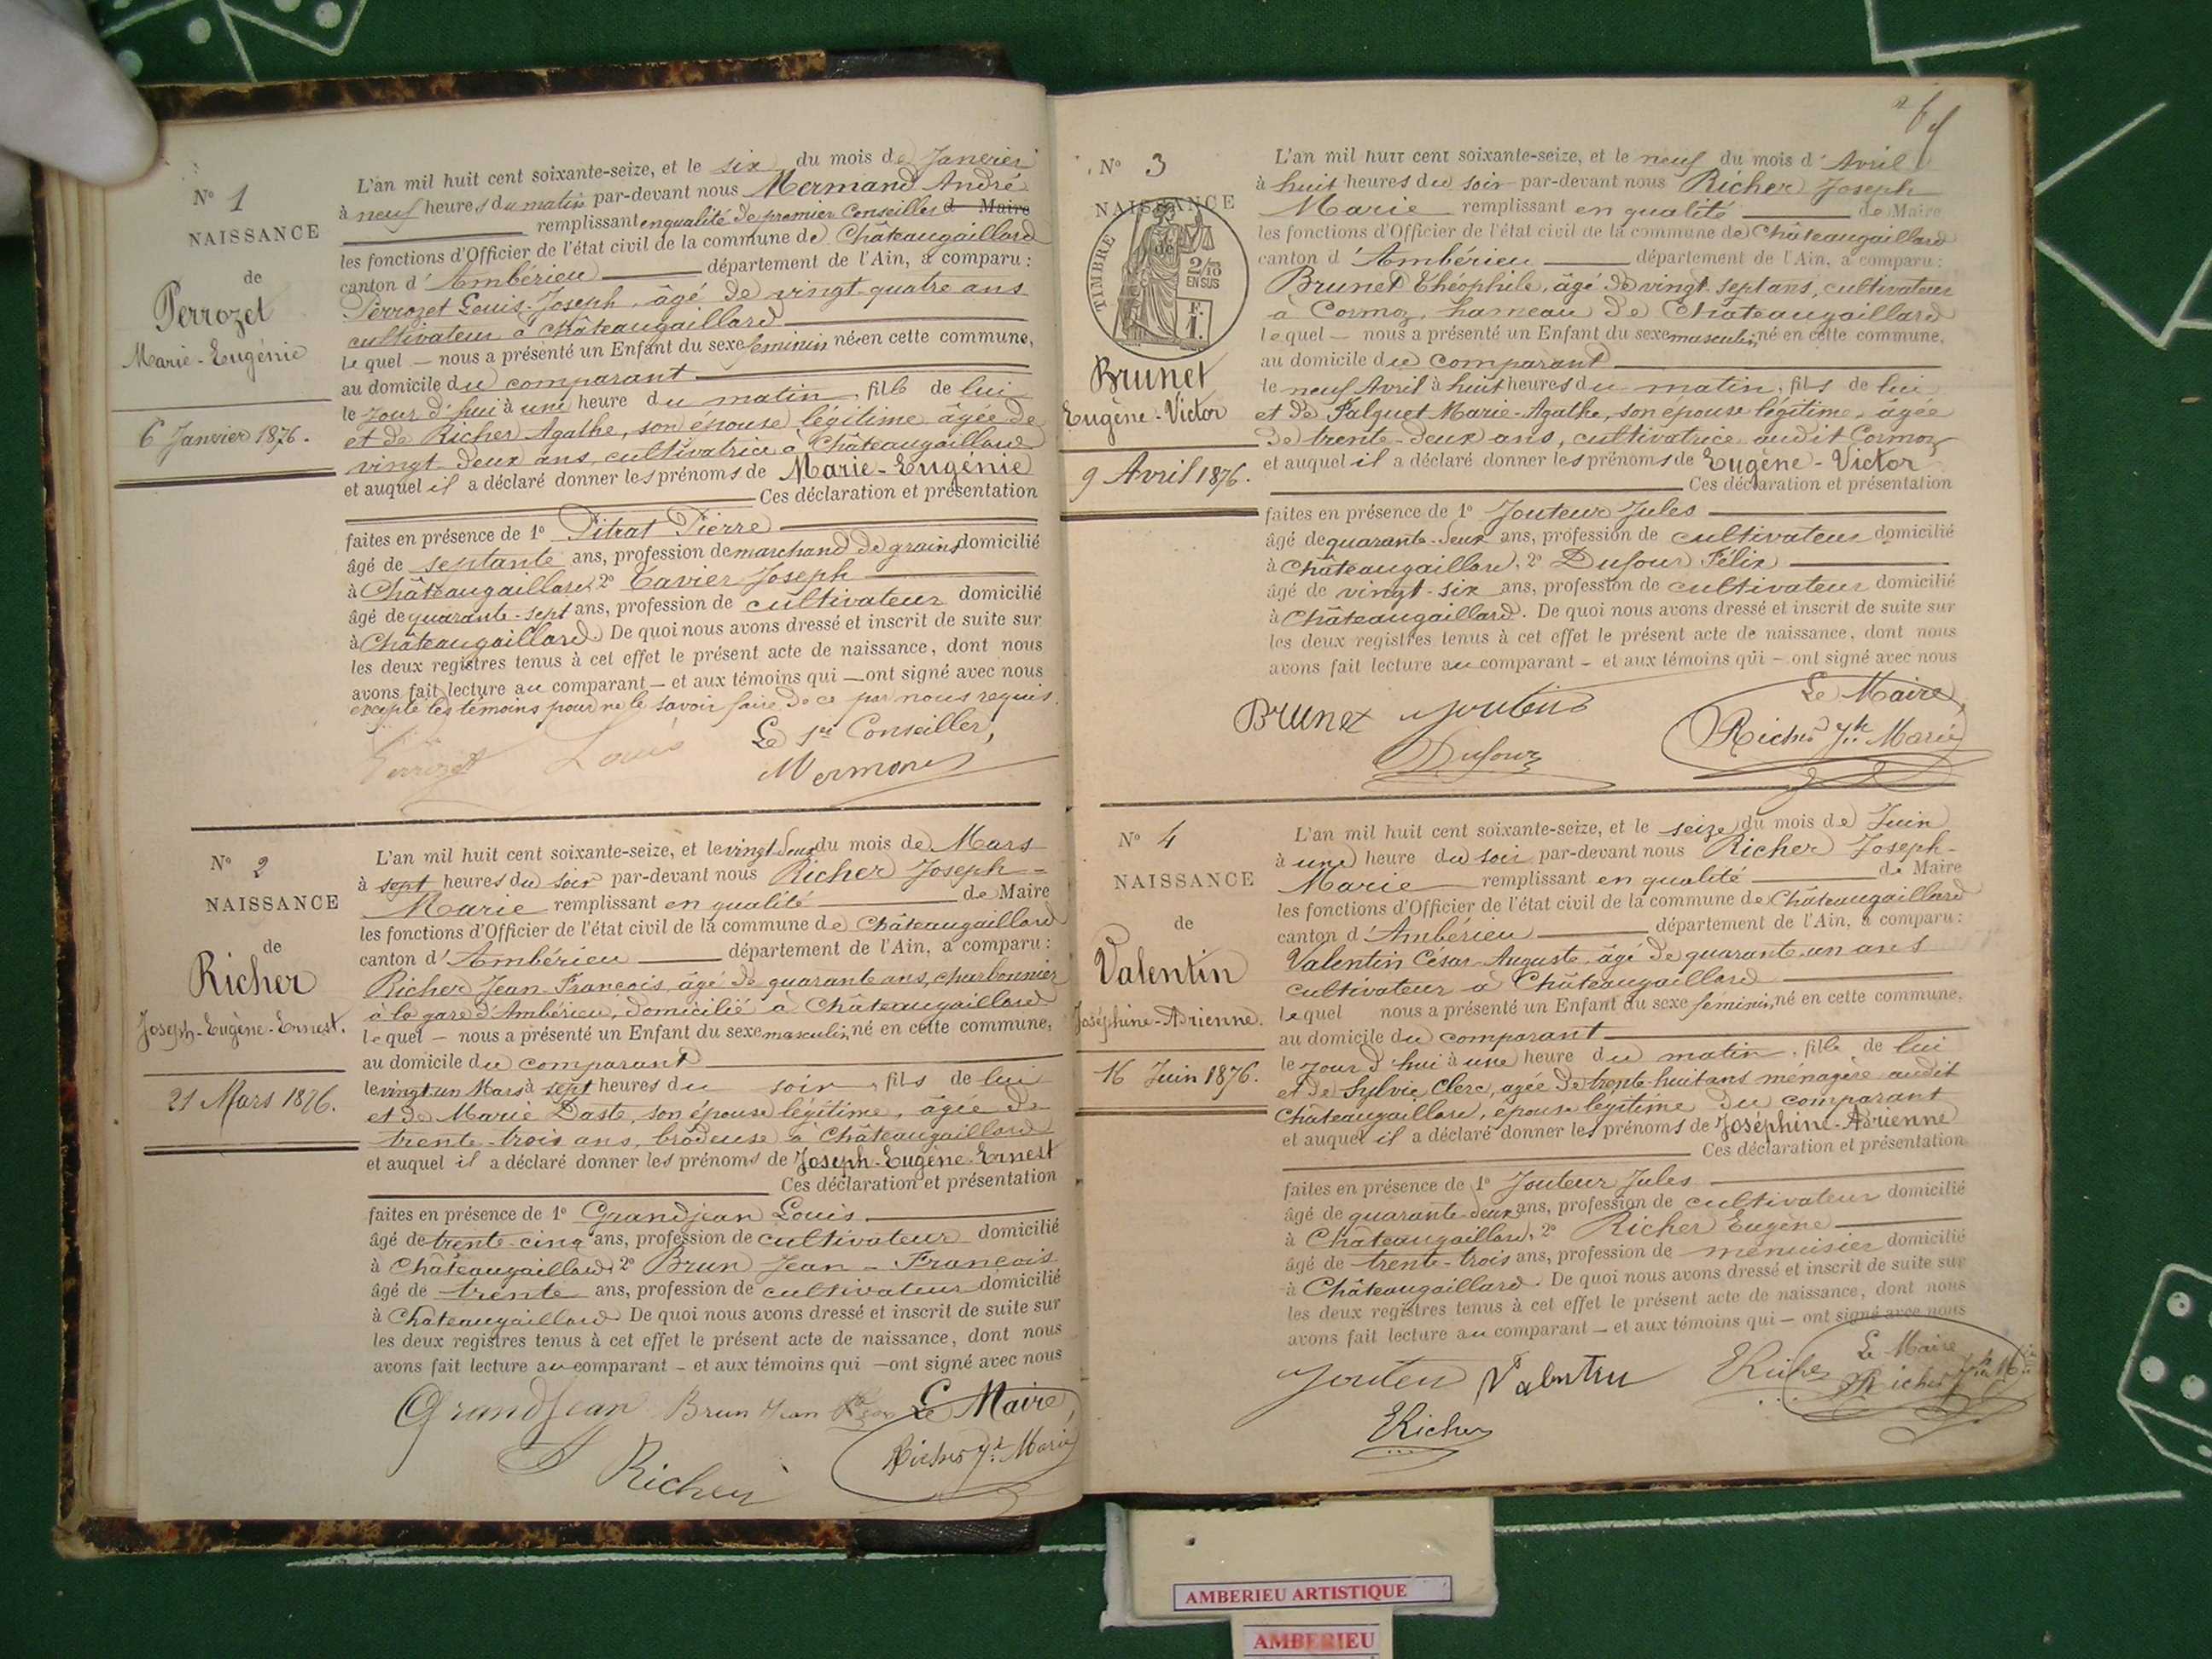 Nº 1
NAISSANCE
de
Perrozet
Marie-Eugénie
6 Janvier 1876.
L'an mil huit cent soixante-seize, et le six du mois de Janvier
à neuf heures du matin par-devant nous Mermand André
remplissant en qualité de premier Conseiller d Maire
les fonctions d'Officier de l'état civil de la commune de Châteaugaillard
canton d'Ambérieu département de l'Ain, a comparu :
Perrozet Louis-Joseph, âgé de vingt-quatre ans
cultivateur à Châteaugaillard
lequel — nous a présenté un Enfant du sexe feminin née en cette commune,
au domicile du comparant
le jour d'hui à une heure du matin, fille de lui
et de Richer Agathe, son épouse légitime âgée de
vingt-deux ans, cultivatrice à Châteaugaillard
et auquel il a déclaré donner les prénoms de Marie-Eugénie
Ces déclaration et présentation
faites en présence de 1º Pitrat Pierre
âgé de septante ans, profession de marchand de grains domicilié
à Châteaugaillard, 2º Tavier Joseph
âgé de quarante-sept ans, profession de cultivateur domicilié
à Châteaugaillard. De quoi nous avons dressé et inscrit de suite sur
les deux registres tenus à cet effet le présent acte de naissance, dont nous
avons fait lecture au comparant — et aux témoins qui — ont signé avec nous
excepté les témoins pour ne le savoir faire de ce par nous requis.
Perrozet Louis
Le 1er Conseiller,
Mermand
Nº 2
NAISSANCE
de
Richer
Joseph-Eugène-Ernest.
21 Mars 1876.
L'an mil huit cent soixante-seize, et le vingt-deux du mois de Mars
à sept heures du soir par-devant nous Richer Joseph-
Marie remplissant en qualité de Maire
les fonctions d'Officier de l'état civil de la commune de Châteaugaillard
canton d'Ambérieu département de l'Ain, a comparu :
Richer Jean-François, âgé de quarante ans, charbonnier
à la gare d'Ambérieu, domicilié à Châteaugaillard
lequel — nous a présenté un Enfant du sexe masculin, né en cette commune,
au domicile du comparant
le vingt un Mars à sept heures du soir, fils de lui
et de Marie Daste, son épouse légitime, âgée de
trente-trois ans, brodeuse à Châteaugaillard
et auquel il a déclaré donner les prénoms de Joseph-Eugène-Ernest
Ces déclaration et présentation
faites en présence de 1º Grandjean Louis
âgé de trente-cinq ans, profession de cultivateur domicilié
à Châteaugaillard, 2º Brun Jean-François
âgé de trente ans, profession de cultivateur domicilié
à Châteaugaillard De quoi nous avons dressé et inscrit de suite sur
les deux registres tenus à cet effet le présent acte de naissance, dont nous
avons fait lecture au comparant — et aux témoins qui — ont signé avec nous
GrandJean Brun Jean Le Maire,
Richer Richer Jh Marie
Nº 3
NAISSANCE
TIMBRE
2/10
EN SUS
F.
1.
Brunet
Eugène-Victor
9 Avril 1876.
L'an mil huit cent soixante-seize, et le neuf du mois d'Avril
à huit heures du soir par-devant nous Richer Joseph
Marie remplissant en qualité de Maire
les fonctions d'Officier de l'état civil de la commune de Châteaugaillard
canton d'Ambérieu département de l'Ain, a comparu :
Brunet Théophile, âgé de vingt-sept ans, cultivateur
à Cormoz, hameau de Châteaugaillard
lequel — nous a présenté un Enfant du sexe masculin, né en cette commune,
au domicile du comparant
le neuf Avril à huit heures du matin, fils de lui
et de Falquet Marie-Agathe, son épouse légitime, âgée
de trente-deux ans, cultivatrice audit Cormoz
et auquel il a déclaré donner les prénoms de Eugène-Victor
Ces déclaration et présentation
faites en présence de 1º Jouteur Jules
âgé de quarante-deux ans, profession de cultivateur domicilié
à Châteaugaillard, 2º Dufour Félix
âgé de vingt-six ans, profession de cultivateur domicilié
à Châteaugaillard. De quoi nous avons dressé et inscrit de suite sur
les deux registres tenus à cet effet le présent acte de naissance, dont nous
avons fait lecture au comparant — et aux témoins qui — ont signé avec nous
Le Maire,
Brunet Jouteur Richer Jh Marie
Dufour
Nº 4
NAISSANCE
de
Valentin
Joséphine-Adrienne.
16 Juin 1876.
L'an mil huit cent soixante-seize, et le seize du mois de Juin
à une heure du soir par-devant nous Richer Joseph-
Marie remplissant en qualité de Maire
les fonctions d'Officier de l'état civil de la commune de Châteaugaillard
canton d'Ambérieu département de l'Ain, a comparu :
Valentin César-Auguste, âgé de quarante-un ans
cultivateur à Châteaugaillard
lequel nous a présenté un Enfant du sexe feminin, né en cette commune,
au domicile du comparant
le jour d'hui à une heure du matin, fille de lui
et de Sylvie Clerc, agée de trente-huit ans ménagère audit
Châteaugaillard, épouse légitime du comparant
et auquel il a déclaré donner les prénoms de Joséphine-Adrienne
Ces déclaration et présentation
faites en présence de 1º Jouteur Jules
âgé de quarante-deux ans, profession de cultivateur domicilié
à Châteaugaillard, 2º Richer Eugène
âgé de trente-trois ans, profession de menuisier domicilié
à Châteaugaillard. De quoi nous avons dressé et inscrit de suite sur
les deux registres tenus à cet effet le présent acte de naissance, dont nous
avons fait lecture au comparant — et aux témoins qui — ont signé avec nous
Le Maire
Jouteur Valentin ERicher Richer Jh M
ERicher
AMBERIEU ARTISTIQUE
AMBERIEU